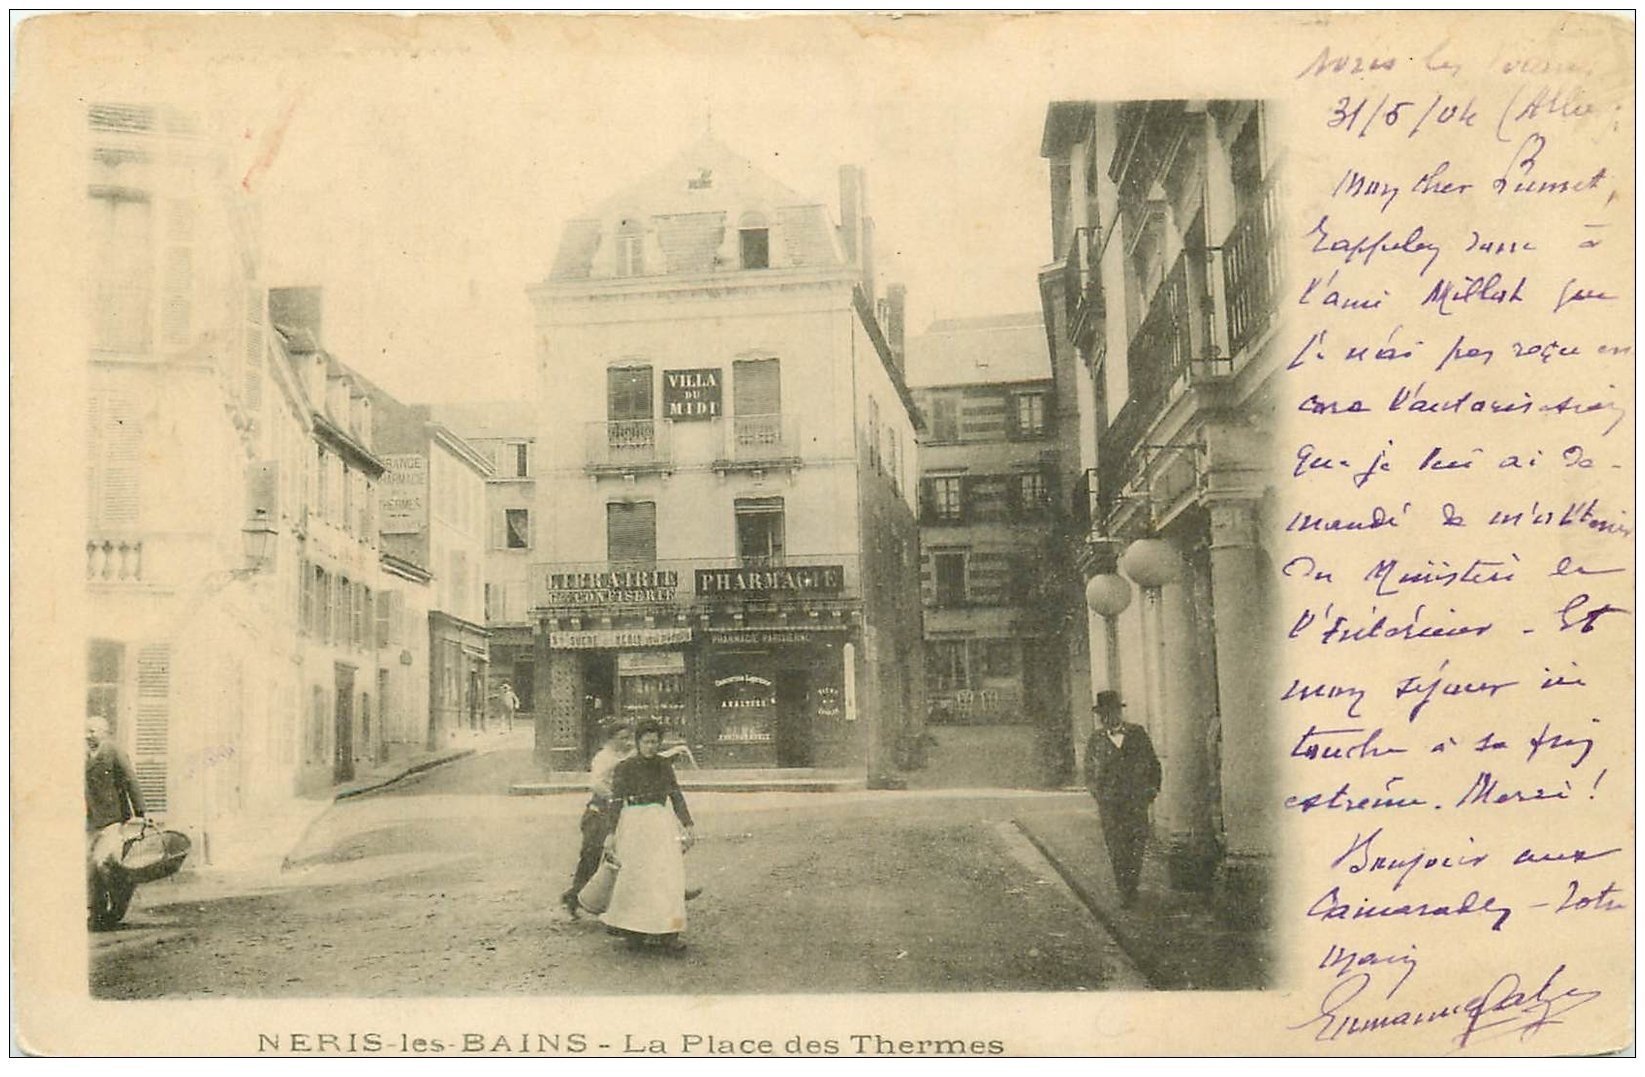 VILLA
DU
MIDI
GRANDE
PHARMACIE
DES
THERMES
LIBRAIRIE
CONFISERIE
PHARMACIE
SUCRE
PHARMACIE PARISIENNE
ANALYSES
NERIS-les-BAINS - La Place des Thermes
Néris les Bains
31/5/04 (Allier)
Mon cher
Rappelez donc à
l'ami Millet que
je n'ai pas reçu en
core l'autorisation
que je lui ai de-
mandé de m'obtenir
du Ministère de
l'Intérieur - Et
mon séjour ici
touche à sa fin
extrême. Merci !
Bonjour aux
Camarades - Votre
main